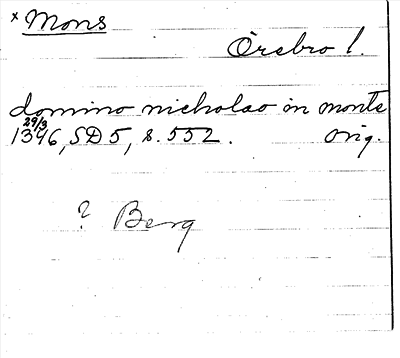 x Mons
Örebro l.
domino nicholao in monte
29/3
1346, SD5, s. 552. orig.
? Berg